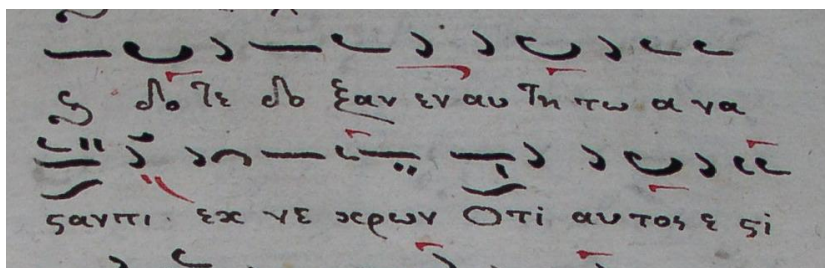 ϗ δο τε δο ξαν εν αυ τη τω α να
ϛαντι εκ νε κρων Οτι αυτος ε ϛι